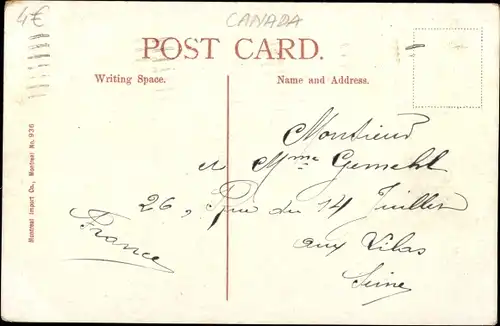 4€
CANADA
POST CARD.
Writing Space.
Name and Address.
Montreal Import Co., Montreal No. 936
Monsieur
et Mme Gemehl
26, Rue du 14 Juillet
aux Lilas
Seine
France